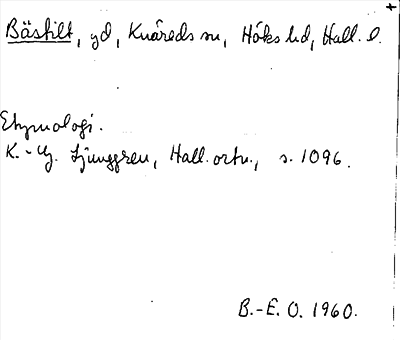 Bästilt, gd, Knäreds sn, Höks hd, Hall. l.
Etymologi.
K.-G. Ljunggren, Hall. ortn., s. 1096.
B.-E. O. 1960.